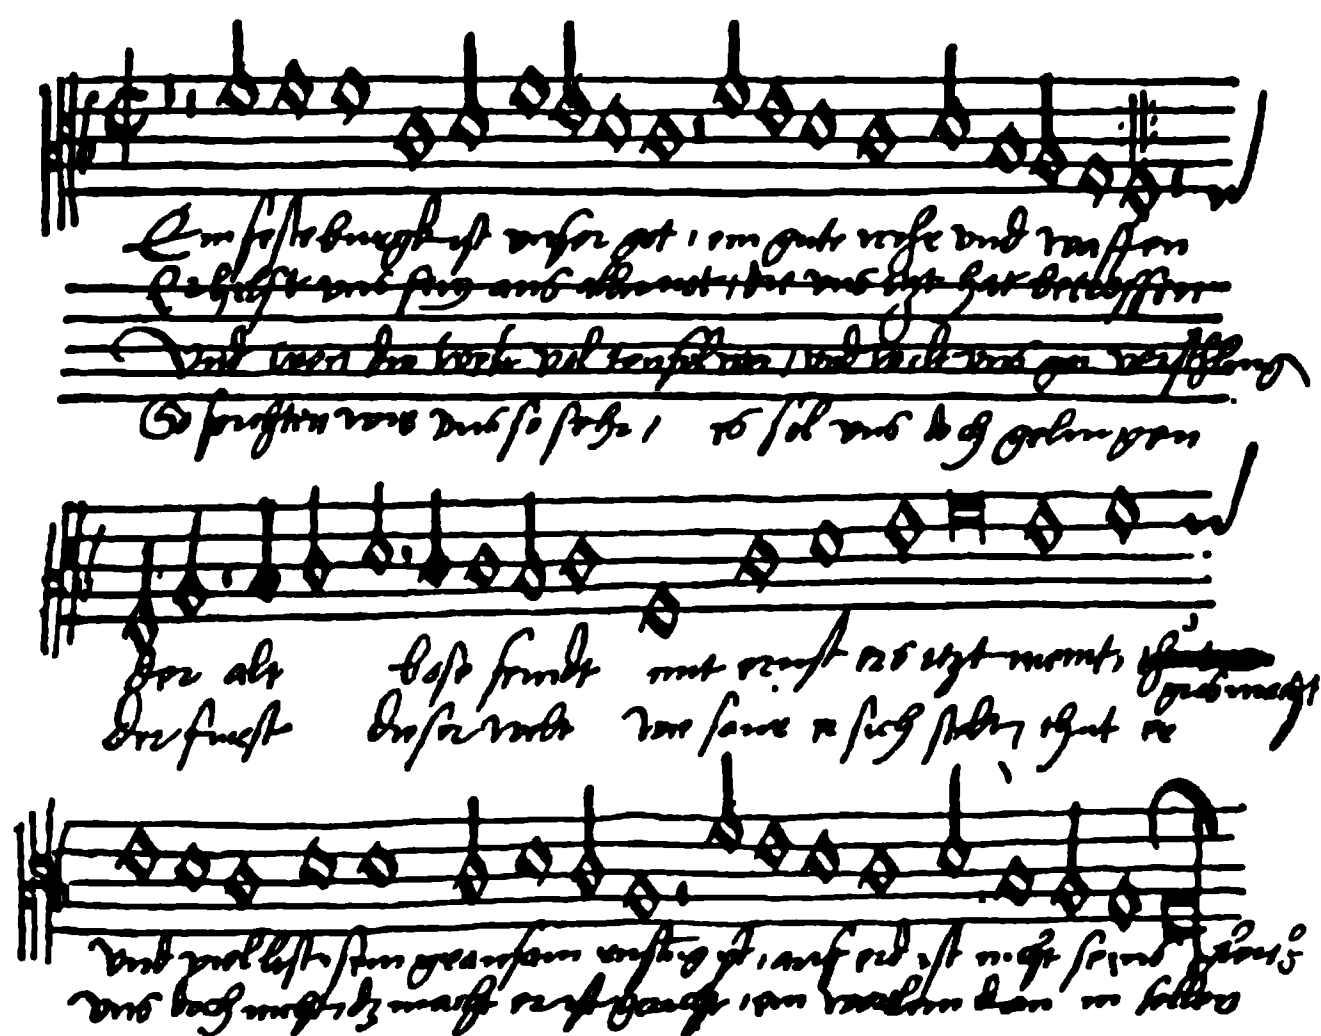 Ein feste burgk ist unser got, ein gute wehr und waffen
Er hilfft uns frey aus aller not, die uns itzt hat betroffen
Und wen die welt vol teufel wer, und wolt uns gar verschlingen
So furchten wir uns so sehr, es sol uns doch gelingen
Der alt bose feindt mit ernst ers itzt meint,
gros macht
der furst dieser welt wie saur er sich stelt, thut er
und viel list, sein grausam rustung ist, auf erd ist nicht seins
uns doch nicht, dz macht er ist gericht, ein